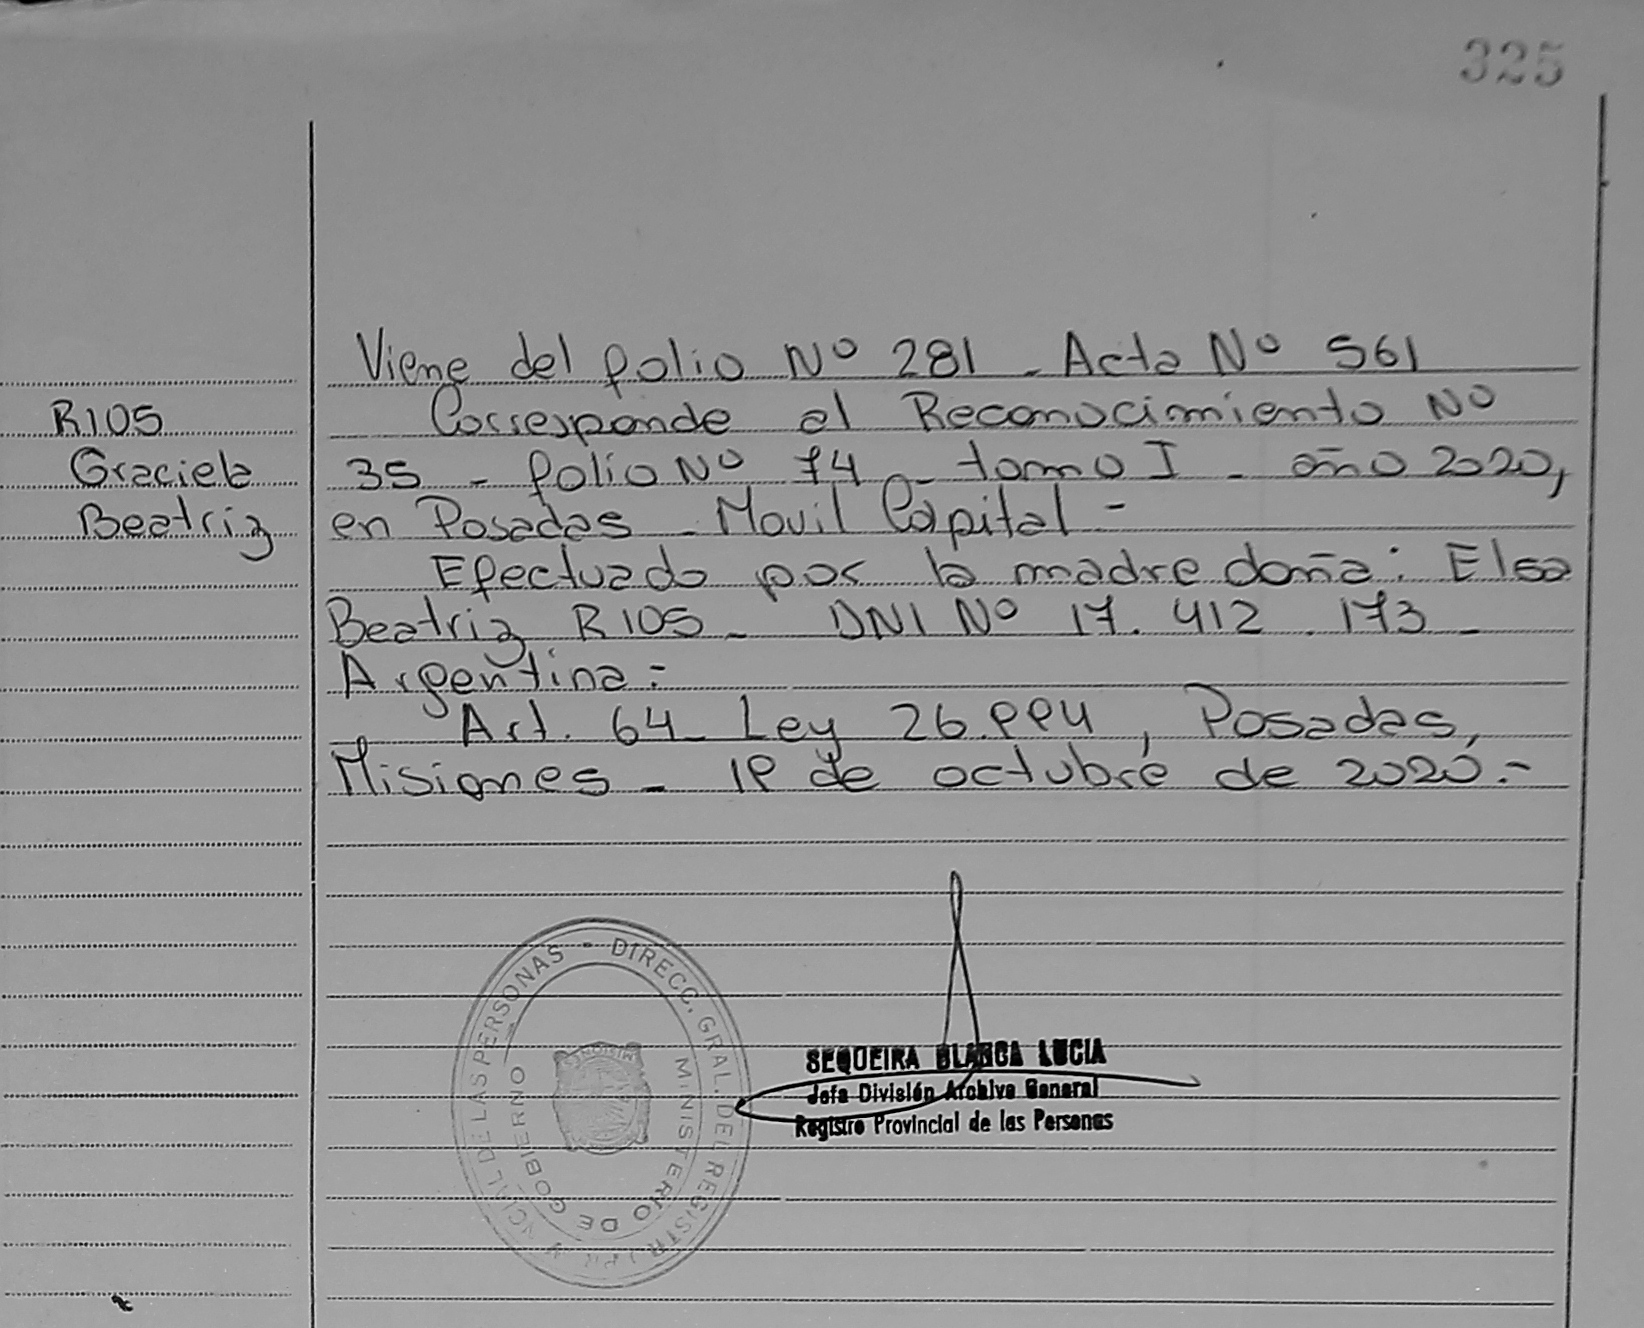 325
Viene del folio Nº 281 - Acta Nº 561
RIOS
Corresponde al Reconocimiento Nº
Graciela
35 - folio Nº 74 - tomo I - año 2020,
Beatriz
en Posadas - Movil Capital -
Efectuado por la madre doña: Elsa
Beatriz RIOS - DNI Nº 17.412.173 -
Argentina =
Art. 64 Ley 26.994, Posadas,
Misiones - 19 de octubre de 2020.-
DIRECC. GRAL. DEL REGISTRO PROVINCIAL DE LAS PERSONAS -
MINISTERIO DE GOBIERNO
MISIONES
SEQUEIRA BLANCA LUCIA
Jefa División Archivo General
Registro Provincial de las Personas